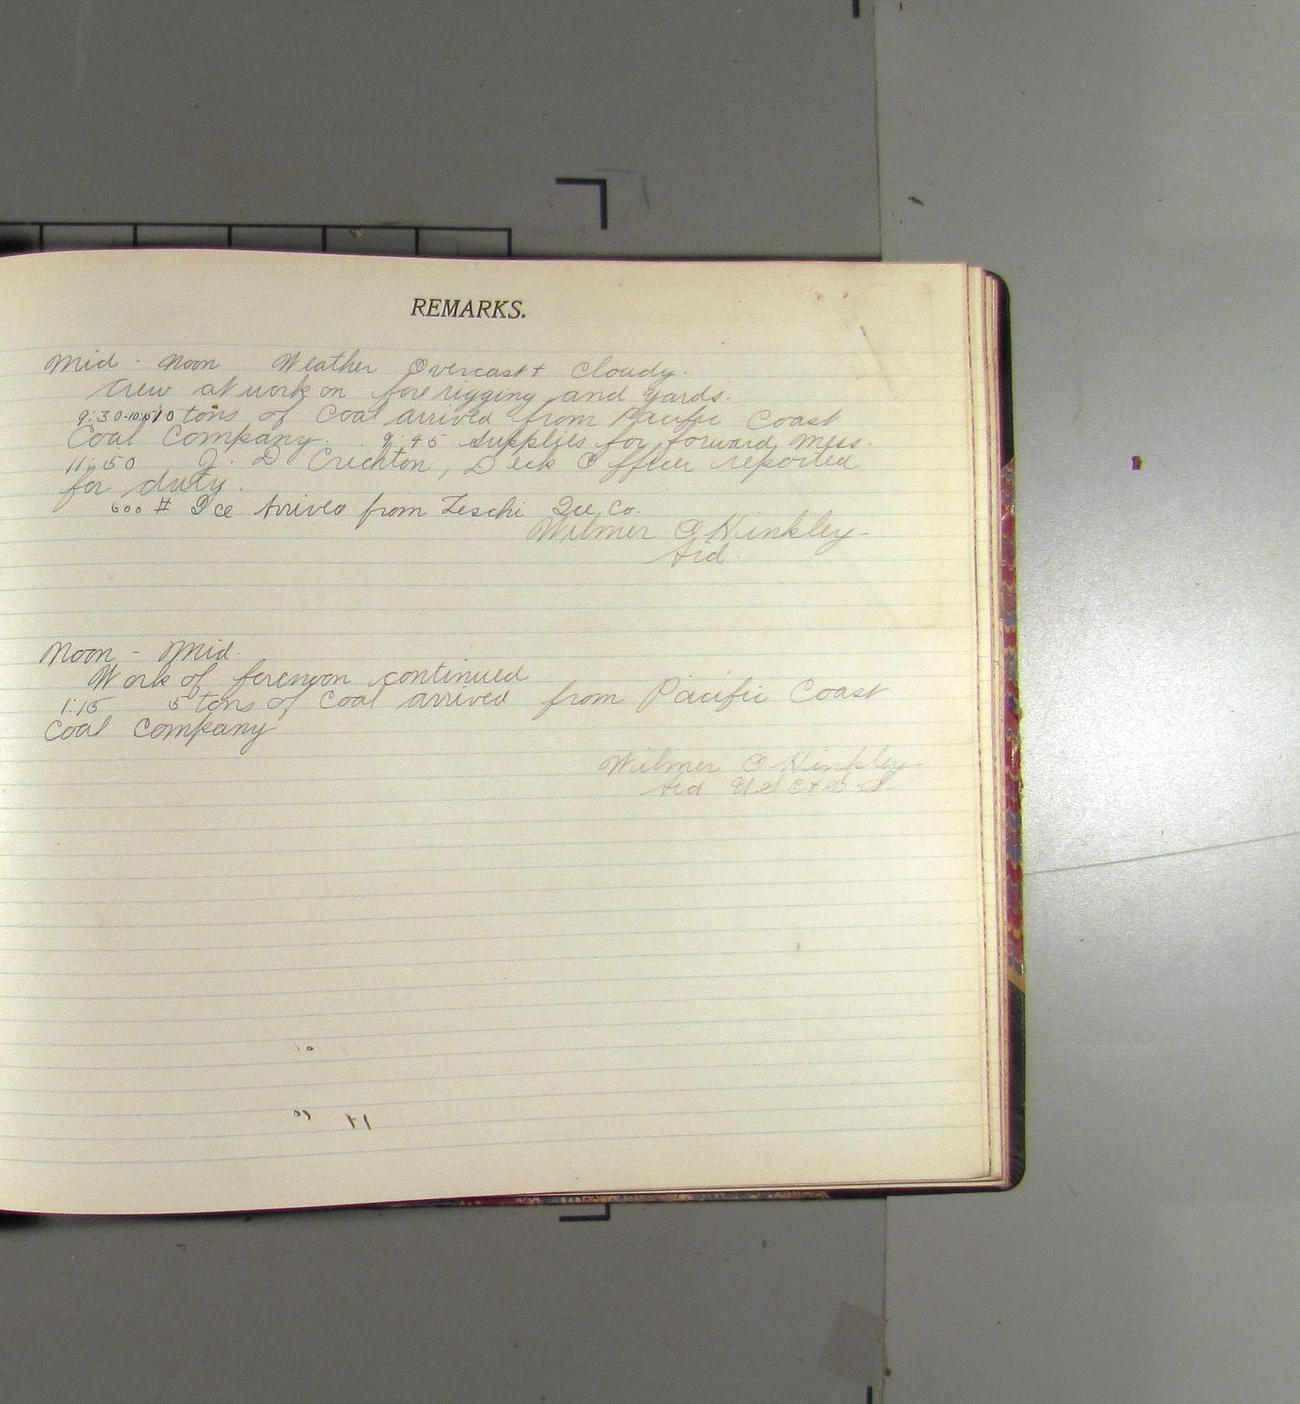 REMARKS.
Mid - Noon Weather Overcast + Cloudy.
Crew at work on fore rigging and yards.
9:30-10:15 10 tons of Coal arrived from Pacific Coast
Coal Company. 9:45 Supplies for forward Mess.
11:50 J. D Crichton, Deck Officer reported
for duty.
600 # Ice Arrived from Leschi Ice Co.
Wilmer O Hinkley
Aid
Noon - Mid.
Work of forenoon continued
1:15 5 tons of Coal arrived from Pacific Coast
Coal Company
Wilmer O Hinkley
Aid U.S.C.&G.S.